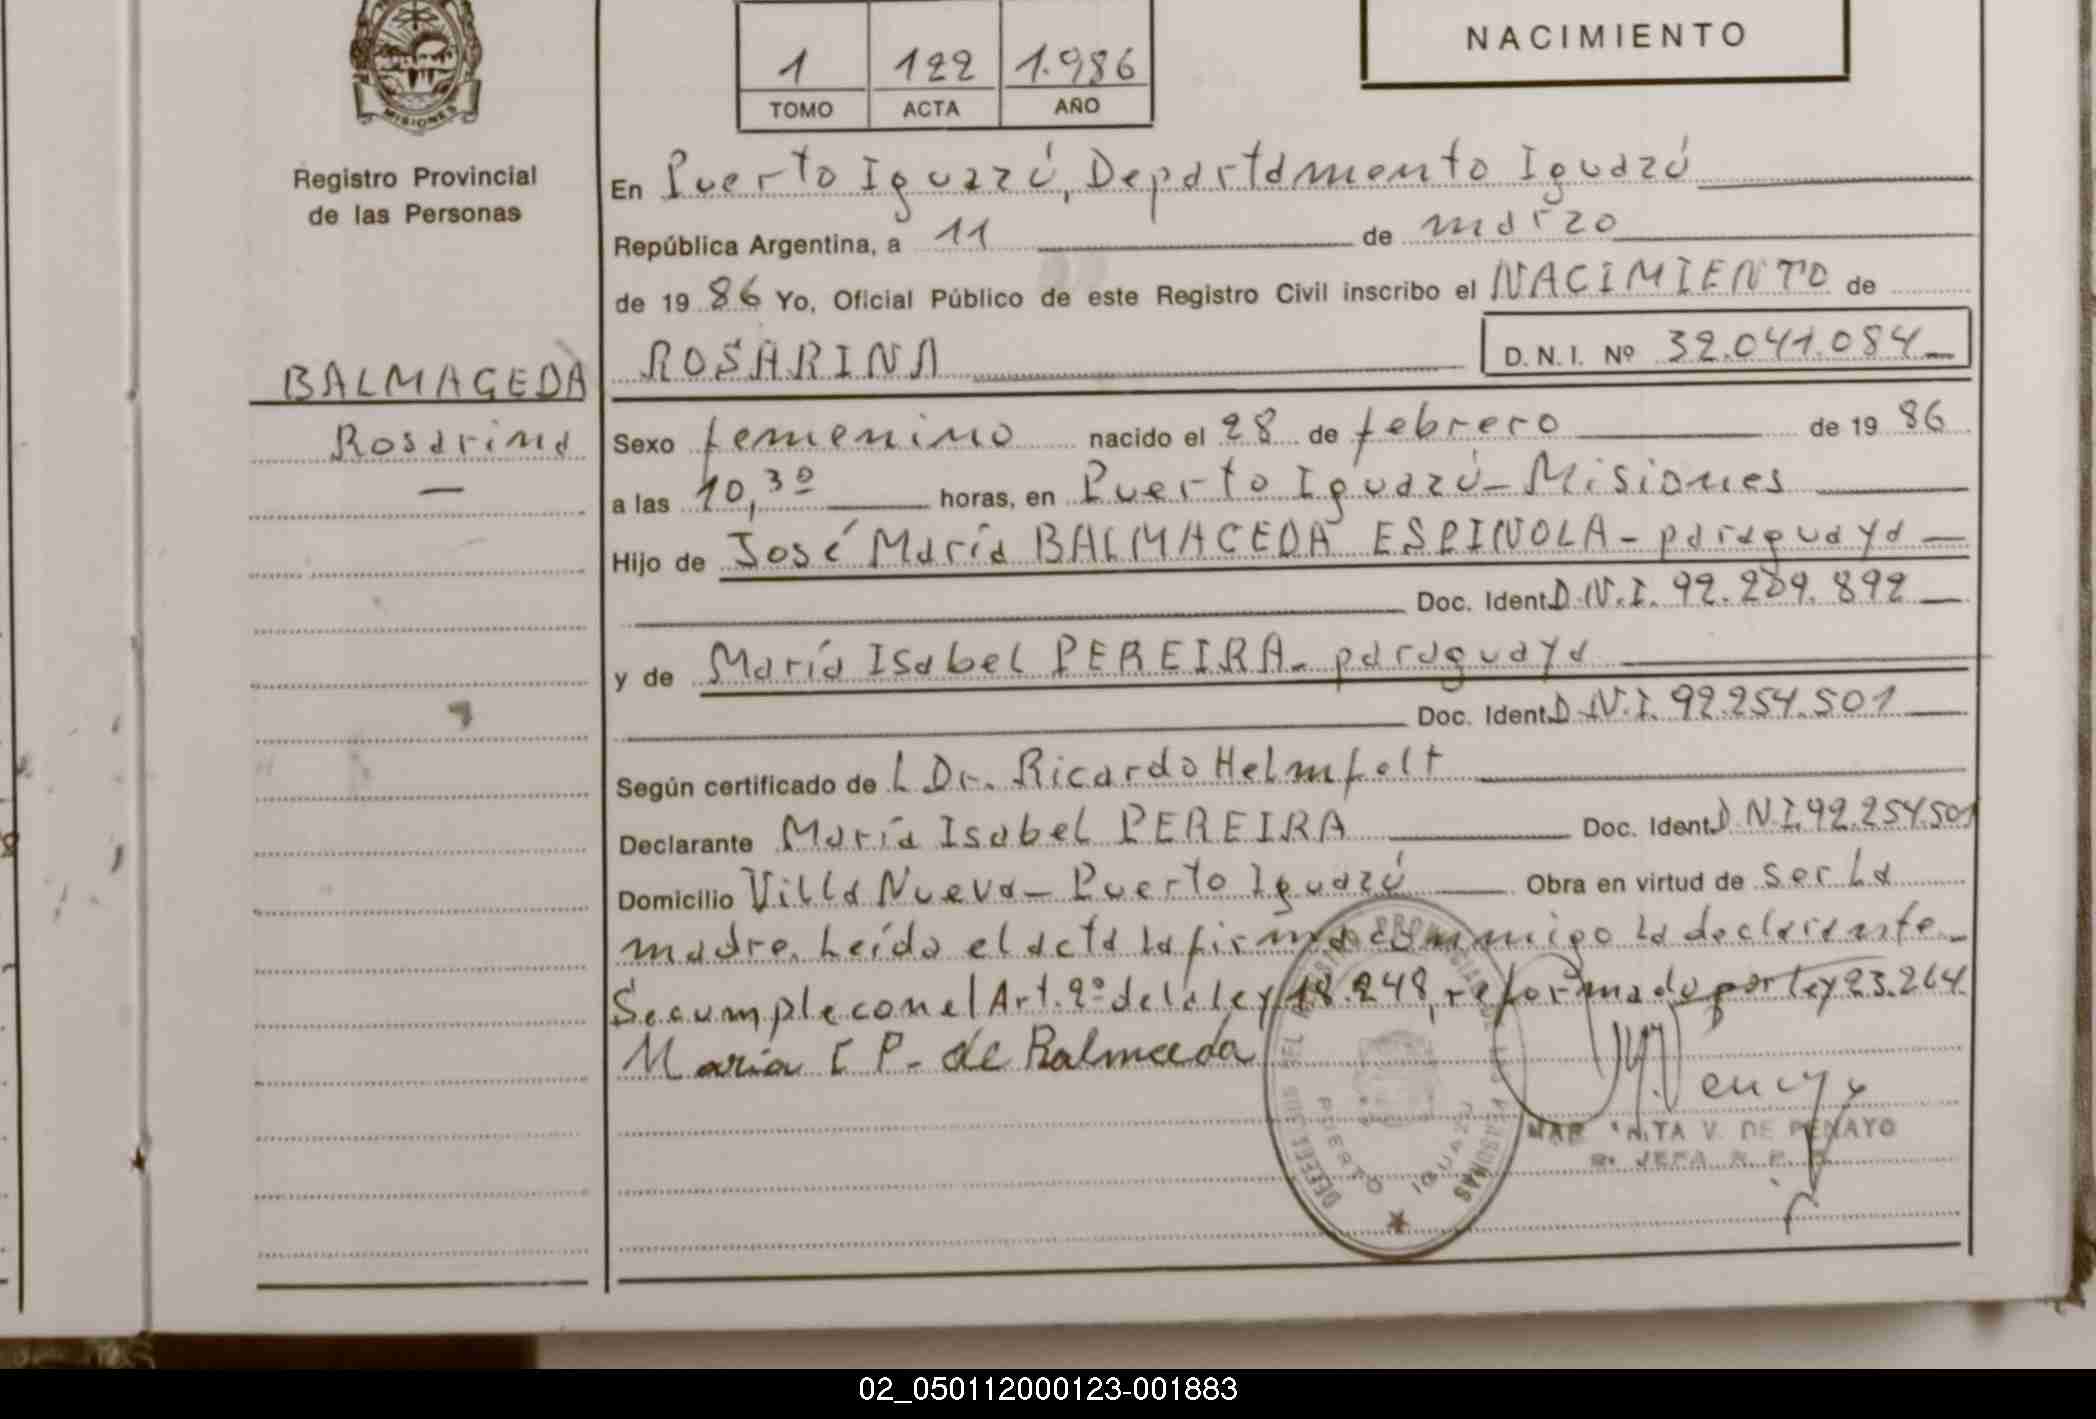 MISIONES
Registro Provincial
de las Personas
BALMAGEDA
Rosarina
1 122 1.986
TOMO ACTA AÑO
NACIMIENTO
En Puerto Iguazú, Departamento Iguazú
República Argentina, a 11 de marzo
de 19 86 Yo, Oficial Público de este Registro Civil inscribo el NACIMIENTO de
ROSARINA D.N.I. Nº 32.041.084
Sexo femenino nacido el 28 de febrero de 19 86
a las 10,30 horas, en Puerto Iguazú - Misiones
Hijo de José María BALMACEDA ESPINOLA - paraguaya
Doc. Ident. D.N.I. 92.209.892
y de María Isabel PEREIRA - paraguaya
Doc. Ident. D.N.I. 92.254.501
Según certificado de L Dr. Ricardo Helmfelt
Declarante María Isabel PEREIRA Doc. Ident. D.N.I. 92.254.501
Domicilio Villa Nueva - Puerto Iguazú Obra en virtud de ser la
madre. Leída el acta la firma conmigo la declarante.
Se cumple con el Art. 2º de la ley 18.248, reformado por ley 23.264.
María I P. de Balmaceda
V. DE PENAYO
JEFA R. P.
PUERTO IGUAZU
02_050112000123-001883